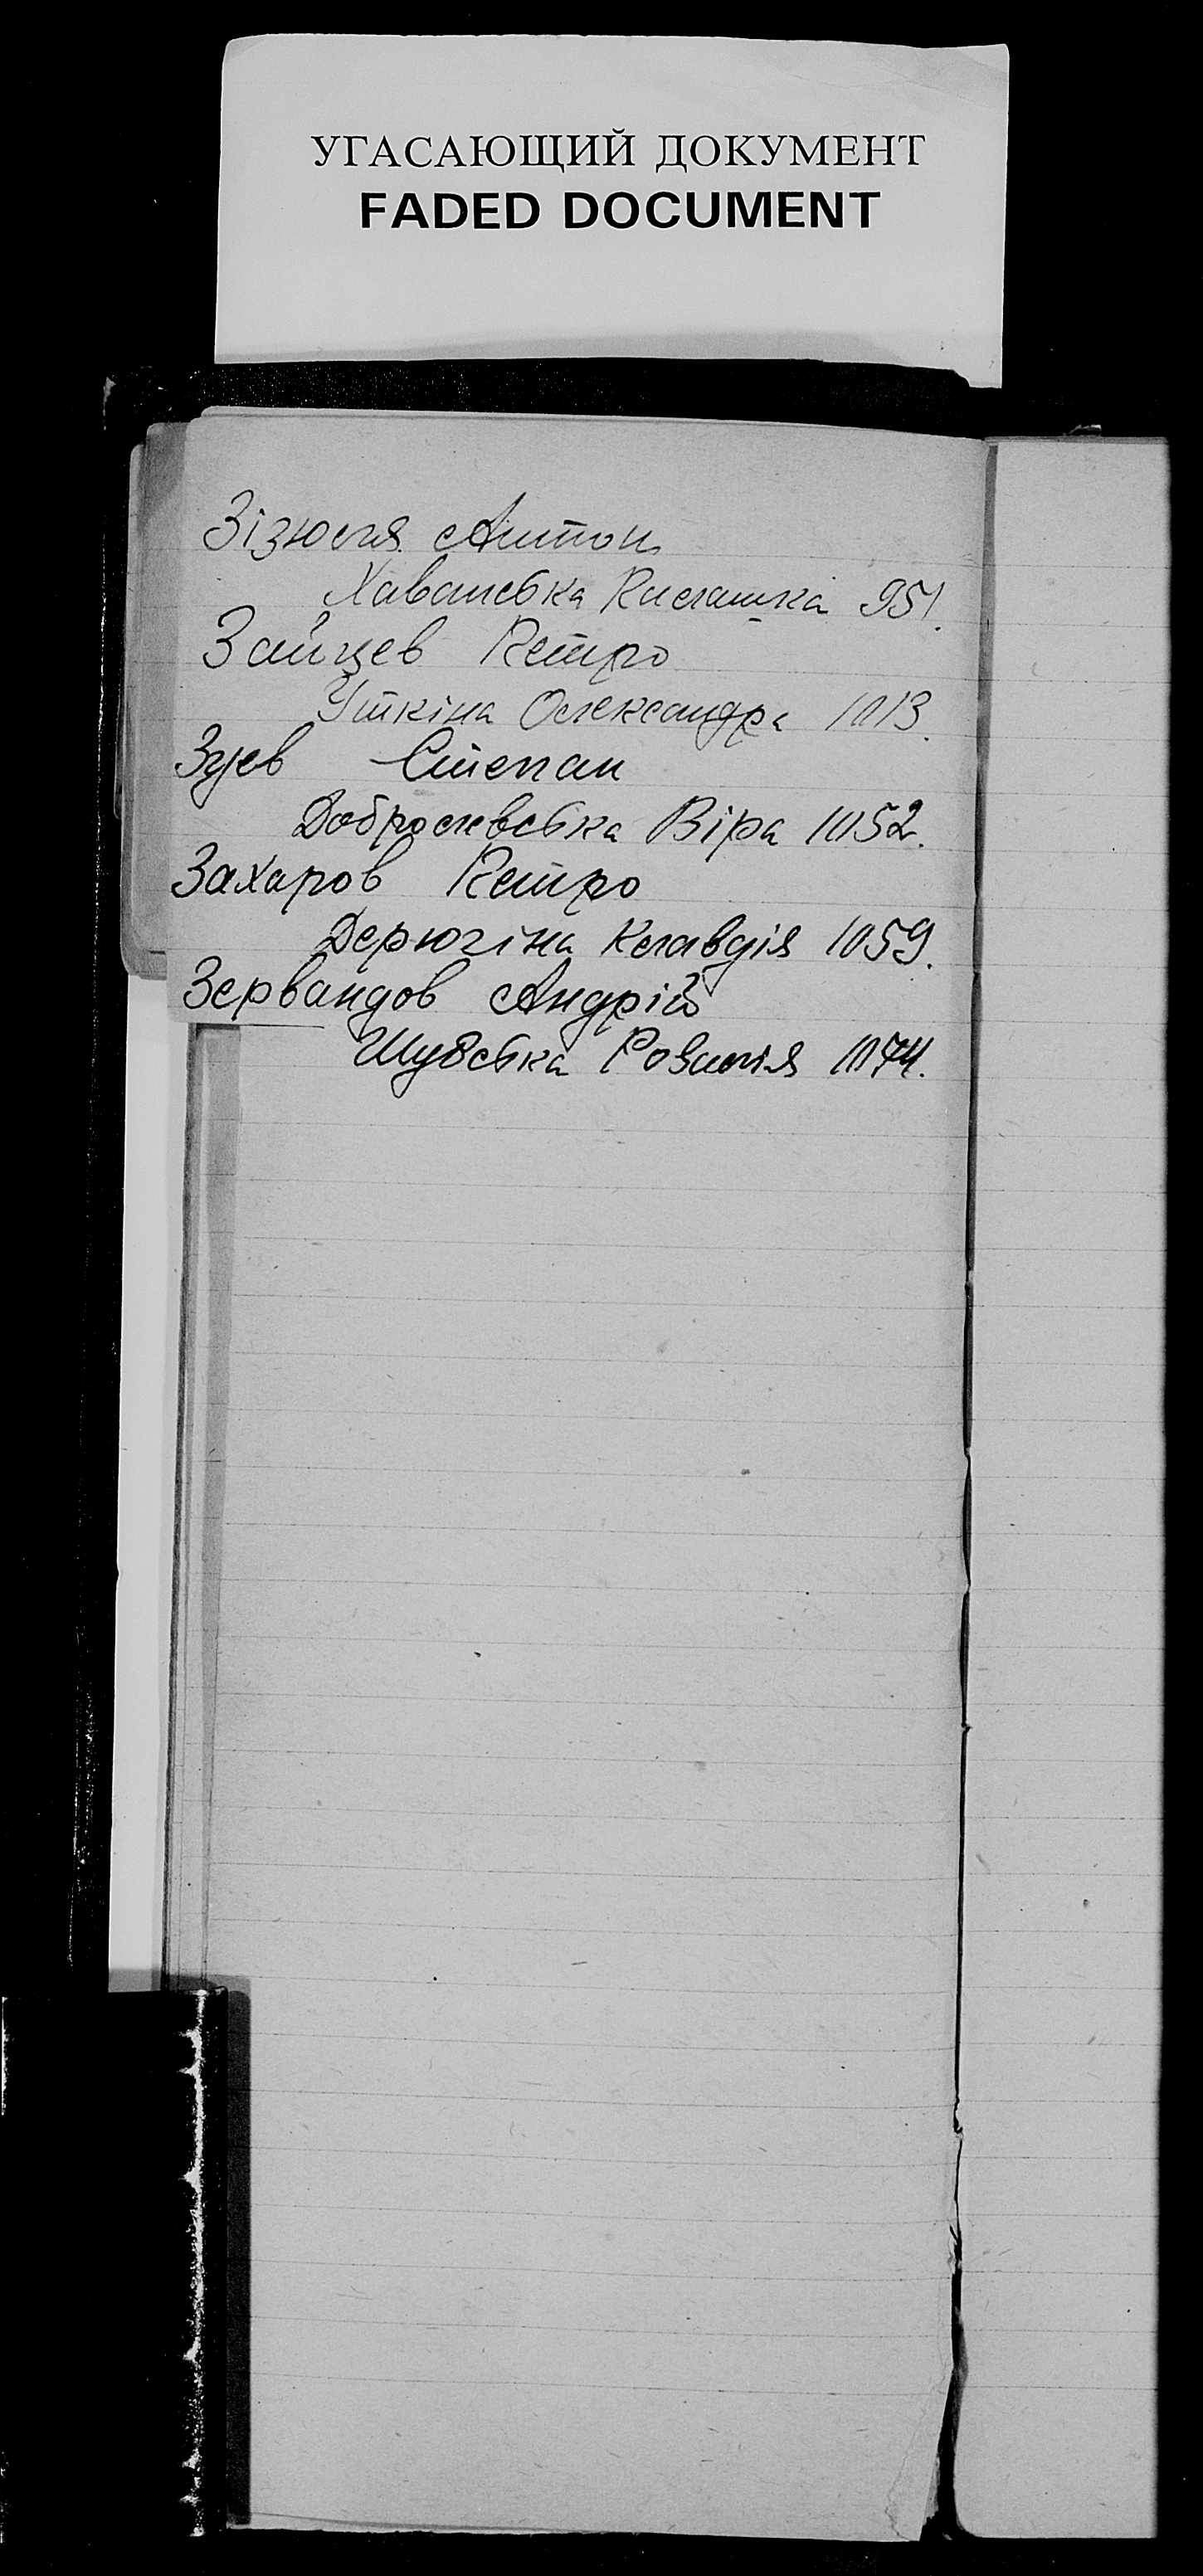 УГАСАЮЩИЙ ДОКУМЕНТ
FADED DOCUMENT
Зізюля Антон
Хаванська 951.
Зайцев Петро
Уткіна Олександра 1013.
Зуев Степан
Добролевська Віра 1052.
Захаров Петро
Дерюгіна Клавдія 1059.
Зервандов Андрій
Шувська Розалія 1074.